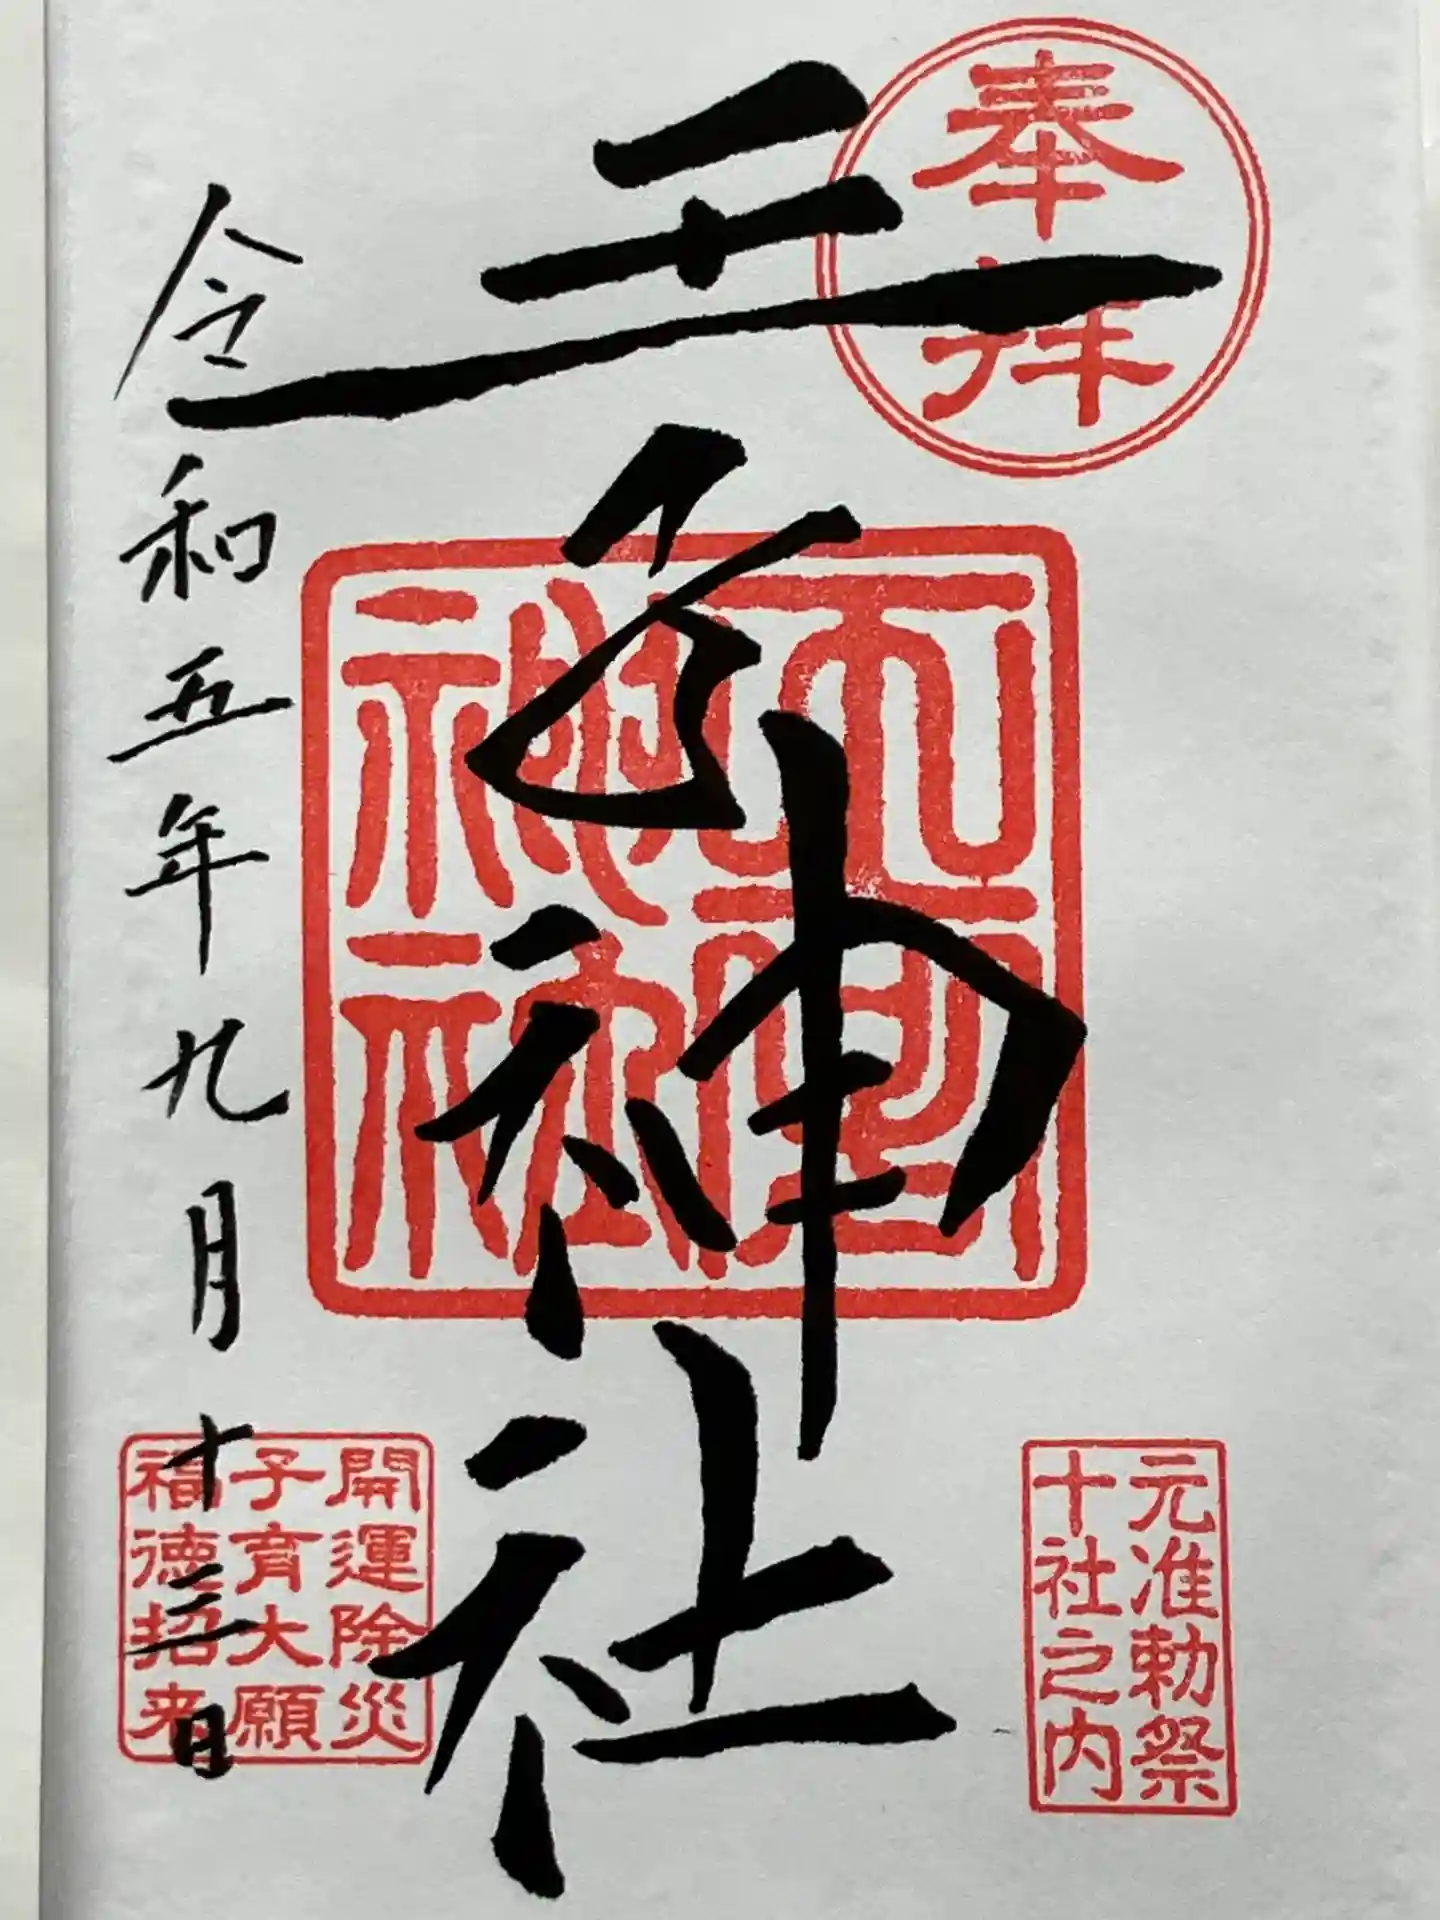 奉拝
王子神社
元准勅祭
十社之内
開運除災
子育大願
福徳招来
令和五年九月十三日